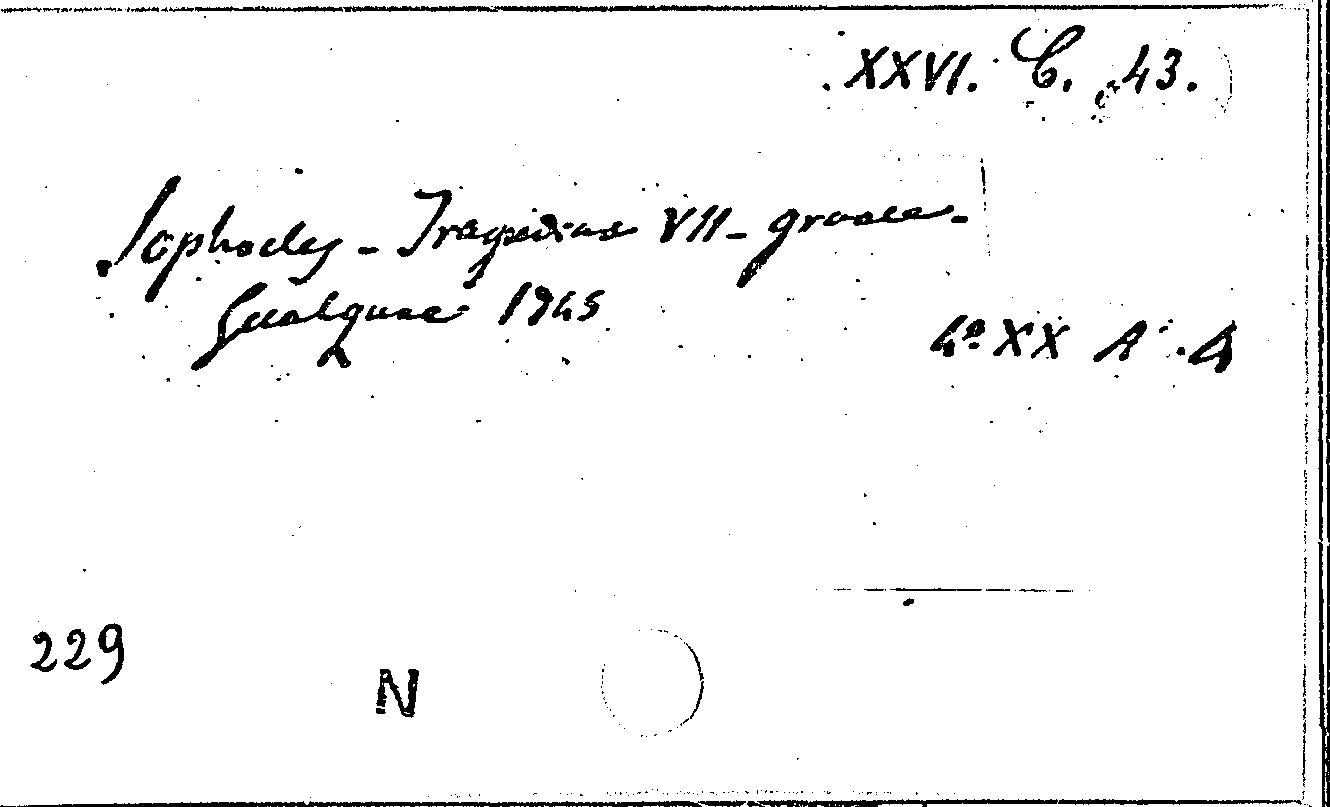 XXVI. C. 43.
Sophocles - Tragoediae VII - graece -
1745
4º XX A. 4
229
N